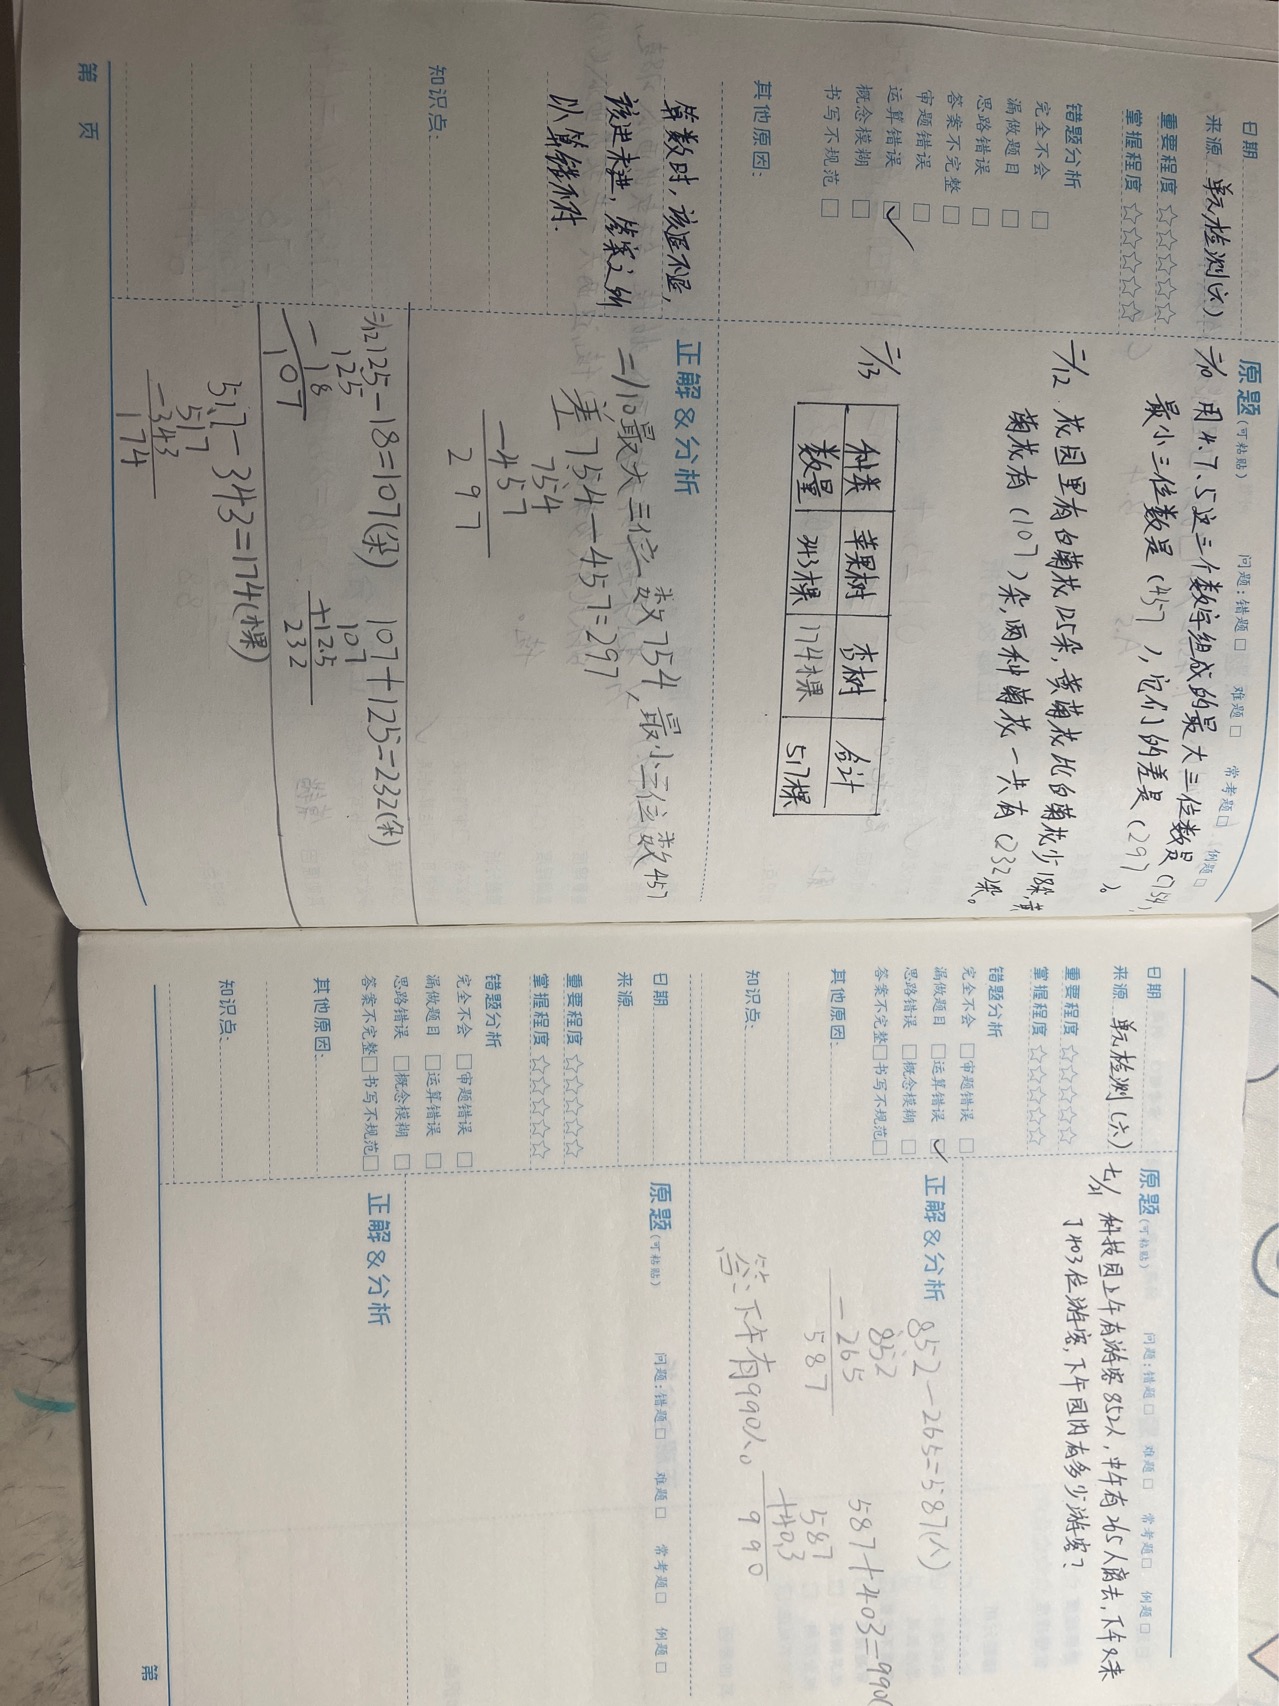 日期
来源 单元检测(六)
重要程度 ☆☆☆☆☆
掌握程度 ☆☆☆☆☆
错题分析
完全不会 □
漏做题目 □
思路错误 □
答案不完整 □
审题错误 □
运算错误 ☑
概念模糊 □
书写不规范 □
其他原因:
算数时,该退不退,
该进未进,答案之所
以算错不对.
知识点:
第 页
原题(可粘贴) 问题:错题□ 难题□ 常考题□ 例题□
二/10 用4、7、5这三个数字组成的最大三位数是(754),
最小三位数是(457),它们的差是(297)。
二/12. 花园里有白菊花125朵,黄菊花比白菊花少18朵,黄
菊花有(107)朵,两种菊花一共有(232)朵。
二/13
种类 苹果树 杏树 合计
数量 343棵 174棵 517棵
正解&分析
二/10最大三位数754,最小三位数457
差 754-457=297
754
-457
297
二/12 125-18=107(朵) 107+125=232(朵)
125
-18
107
107
+125
232
517-343=174(棵)
517
-343
174
日期
来源 单元检测(六)
重要程度 ☆☆☆☆☆
掌握程度 ☆☆☆☆☆
错题分析
完全不会 □ 审题错误 □
漏做题目 □ 运算错误 ☑
思路错误 □ 概念模糊 □
答案不完整□ 书写不规范□
其他原因:
知识点:
原题(可粘贴) 问题:错题□ 难题□ 常考题□ 例题□
七/21 科技园上午有游客852人,中午有265人离去,下午又来
了403位游客,下午园内有多少游客?
正解&分析 852-265=587(人) 587+403=990(
852
-265
587
587
+403
990
答:下午有990人。
日期
来源
重要程度 ☆☆☆☆☆
掌握程度 ☆☆☆☆☆
错题分析
完全不会 □ 审题错误 □
漏做题目 □ 运算错误 □
思路错误 □ 概念模糊 □
答案不完整□ 书写不规范□
其他原因:
知识点:
原题(可粘贴) 问题:错题□ 难题□ 常考题□ 例题□
正解&分析
第